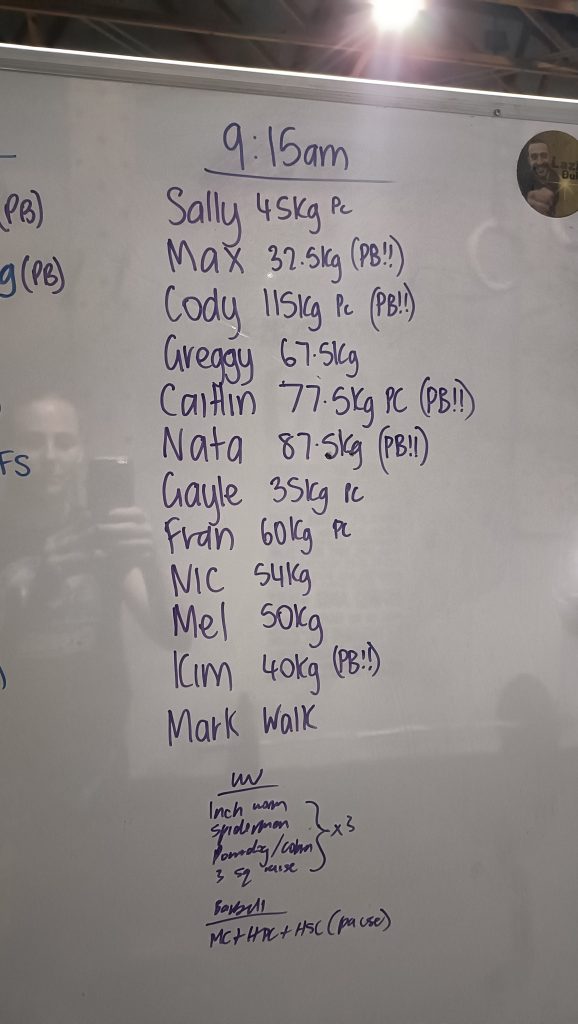 9:15am
(PB)
Sally 45kg Pc
Max 32.5kg (PB!!)
g (PB)
Cody 115kg Pc (PB!!)
Greggy 67.5kg
Caitlin 77.5kg PC (PB!!)
Nata 87.5kg (PB!!)
FS
Gayle 35kg PC
Fran 60kg PC
NIC 54kg
Mel 50kg
Kim 40kg (PB!!)
Mark Walk
Inch worm
Spiderman
x3
3 sq
Barbell
MC + HPC + HSC (pause)